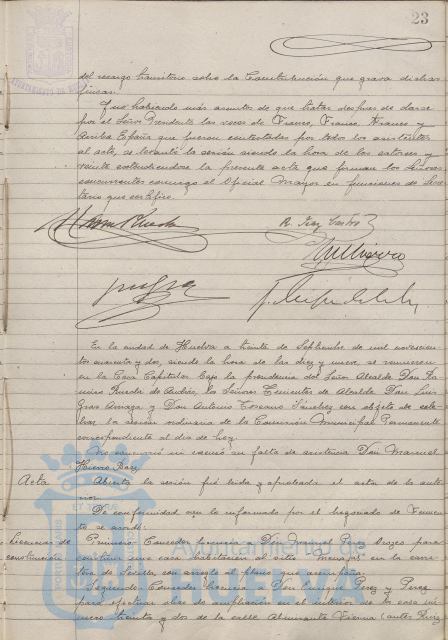 23
del recargo transitorio sobre la Contribución que grava dichas
fincas.
Y no habiendo más asuntos de que tratar despues de darse
por el Señor Presidente las voces de Franco, Franco, Franco y
Arriba España que fueron contestadas por todos los asistentes
al acto, se levantó la sesión siendo la hora de las catorce y
veinte extendiendose la presente acta que firman los Señores
concurrentes conmigo el Oficial Mayor en funciones de Secre-
tario que certifico.
En la ciudad de Huelva a treinta de Septiembre de mil novescien-
tos cuarenta y dos, siendo la hora de las diez y nueve, se reunieron
en la Casa Capitular bajo la presidencia del Señor Alcalde Don
Rueda de los Señores Tenientes de Alcalde Don Luis
y Don Antonio Sánchez con objeto de cele-
brar la sesión ordinaria de la Comisión Municipal Permanente
correspondiente al dia de hoy.
No concurrió ni excusó su falta de asistencia Don Manuel
Acta. Abierta la sesión fué leida y aprobada el acta de la ante-
rior.
De conformidad con lo informado por el Negociado de Fomen-
to se acordó:
Licencias de Primero: Conceder licencia a Don Manuel para
construcción construir una casa habitación al sitio en la carre-
tera de Sevilla con arreglo al plano que acompaña.
Segundo: Conceder licencia a Don Enrique Perez y Perez
para efectuar obras de ampliación en el interior de la casa nú-
mero treinta y dos de la calle Almirante (antes
Ayuntamiento de
HUELVA